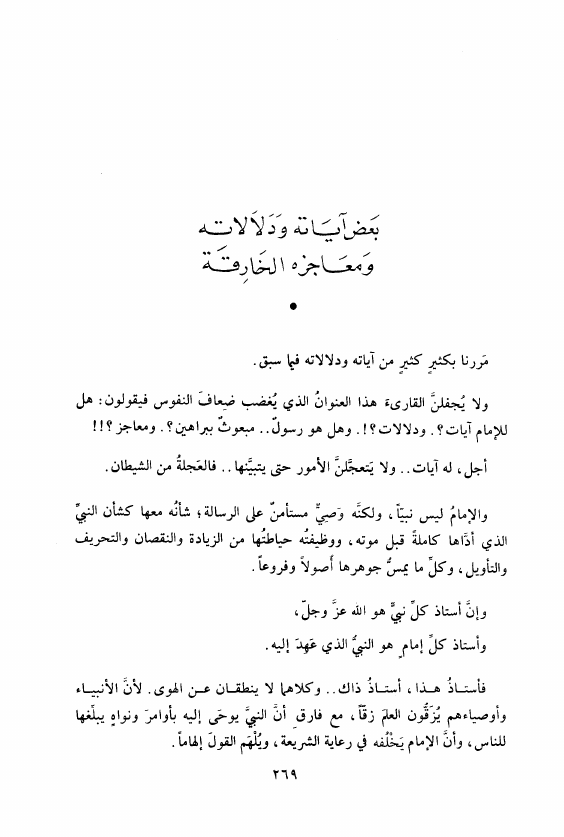 بَعض آيَاته وَدَلَالاته
وَمعَاجزه الخَارِقَة
•
مَررنا بكثيرٍ كثيرٍ من آياته ودلالاته فيما سبق.
ولا يُجفلنَّ القارىءَ هذا العنوانُ الذي يُغضب ضِعافَ النفوس فيقولون: هل
للإمام آيات؟. ودلالات؟!. وهل هو رسولٌ.. مبعوثٌ ببراهين؟. ومعاجز؟!!
أجل، له آيات.. ولا يَتعجَّلنَّ الأمور حتى يتبيَّنها.. فالعَجلةُ من الشيطان.
والإمامُ ليس نبيّاً، ولكنَّه وَصيٌّ مستأمنٌ على الرسالة؛ شأنُه معها كشأن النبيِّ
الذي أدَّاها كاملةً قبل موته، ووظيفتُه حياطتُها من الزيادة والنقصان والتحريف
والتأويل، وكلِّ ما يمسُّ جوهرها أصولاً وفروعاً.
وإنَّ أستاذ كلِّ نبيٍّ هو الله عزَّ وجلّ،
وأستاذ كلِّ إمامٍ هو النبيُّ الذي عَهِدَ إليه.
فأستـاذُ هـذا، أستـاذُ ذاك.. وكلاهما لا ينطقـان عـن الهوى. لأنَّ الأنبيـاء
وأوصياءهم يُزَقُّون العلمَ زقّاً، مع فارقٍ أنَّ النبيَّ يوحَى إليه بأوامرَ ونواهٍ يبلِّغها
للناس، وأنَّ الإمام يَخْلُفه في رعاية الشريعة، ويُلْهَم القولَ إلهاماً.
٢٦٩